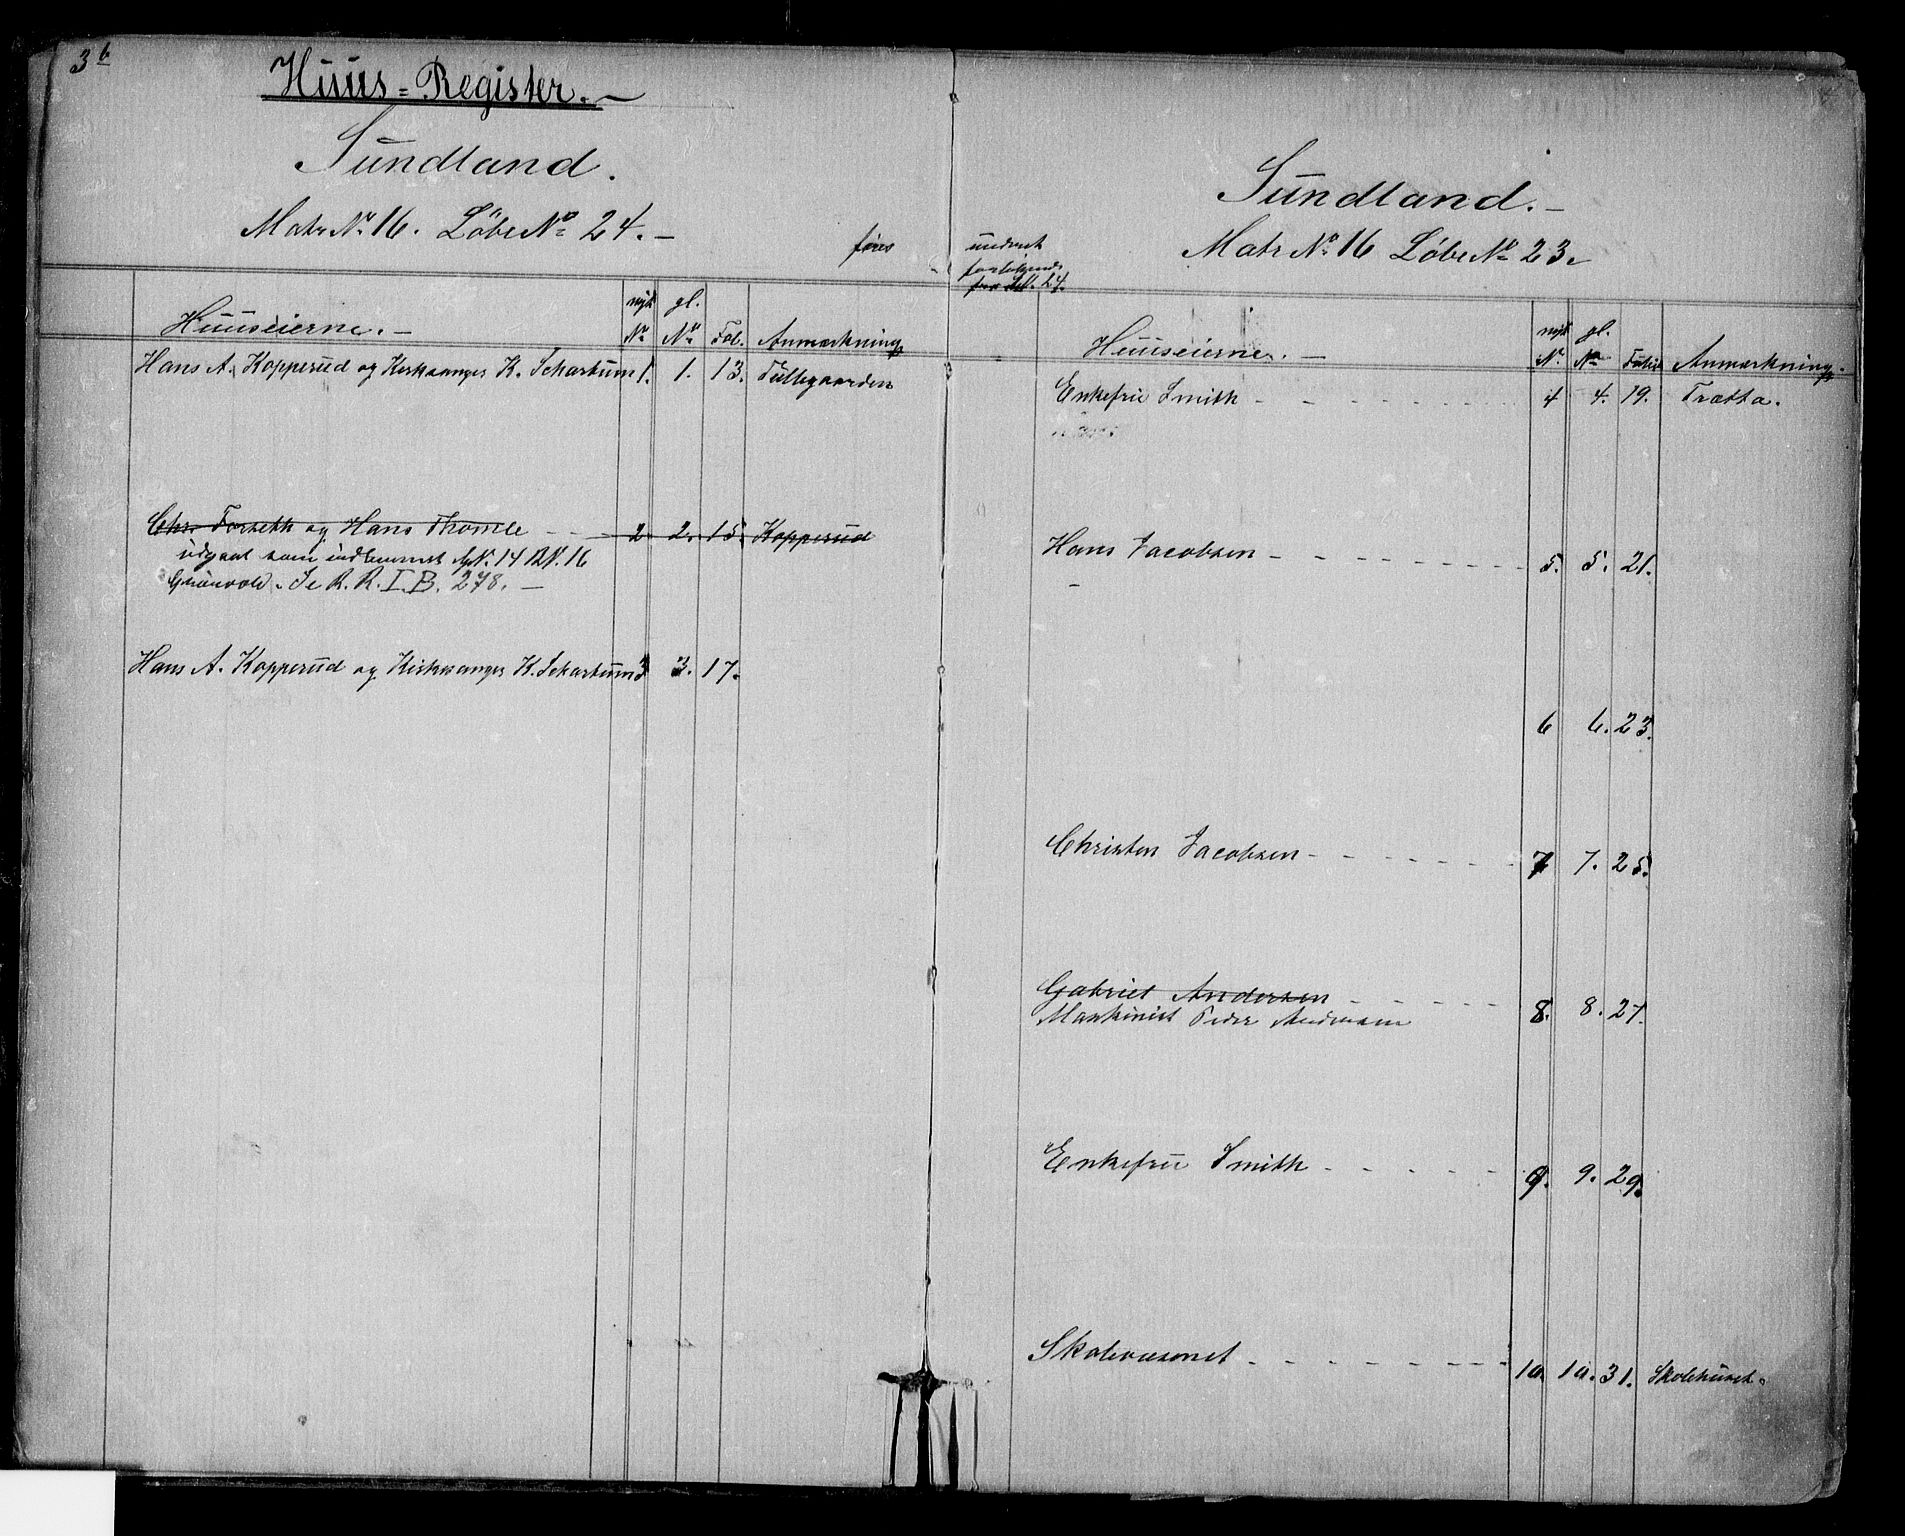 3b
Huus-Register.
Sundland.
Matr No 16. Löbe No 24.
føres
Huuseierne. nyt No gl. No Fol. Anmærkning
Hans A. Kopperud og Kirksanger K. Schartum 1. 1. 13. Tullegaarden
Chr. Forseth og Hans Thomle 2. 2. 15. Kopperud
udgaat som indlemmet GN. 14 BN. 16
Grönvold. Se R. R. I. B. 278.
Hans A. Kopperud og Kirksanger K. Schartum 3 3. 17.
4
Sundland.
Matr No 16 Löbe No 23.
underet
fra LN. 24.
Huuseierne. nyt No. gl. No Folio Anmærkning.
Enkefru Smith 4 4. 19. Trætta.
Hans Jacobsen 5. 5. 21.
6 6. 23.
Christen Jacobsen 7 7. 25.
Gabriel Andersen 8. 8. 27.
Maskinist Peder Andersen
Enkefru Smith 9. 9. 29.
Skolevæsenet 10. 10. 31. Skolehuset.